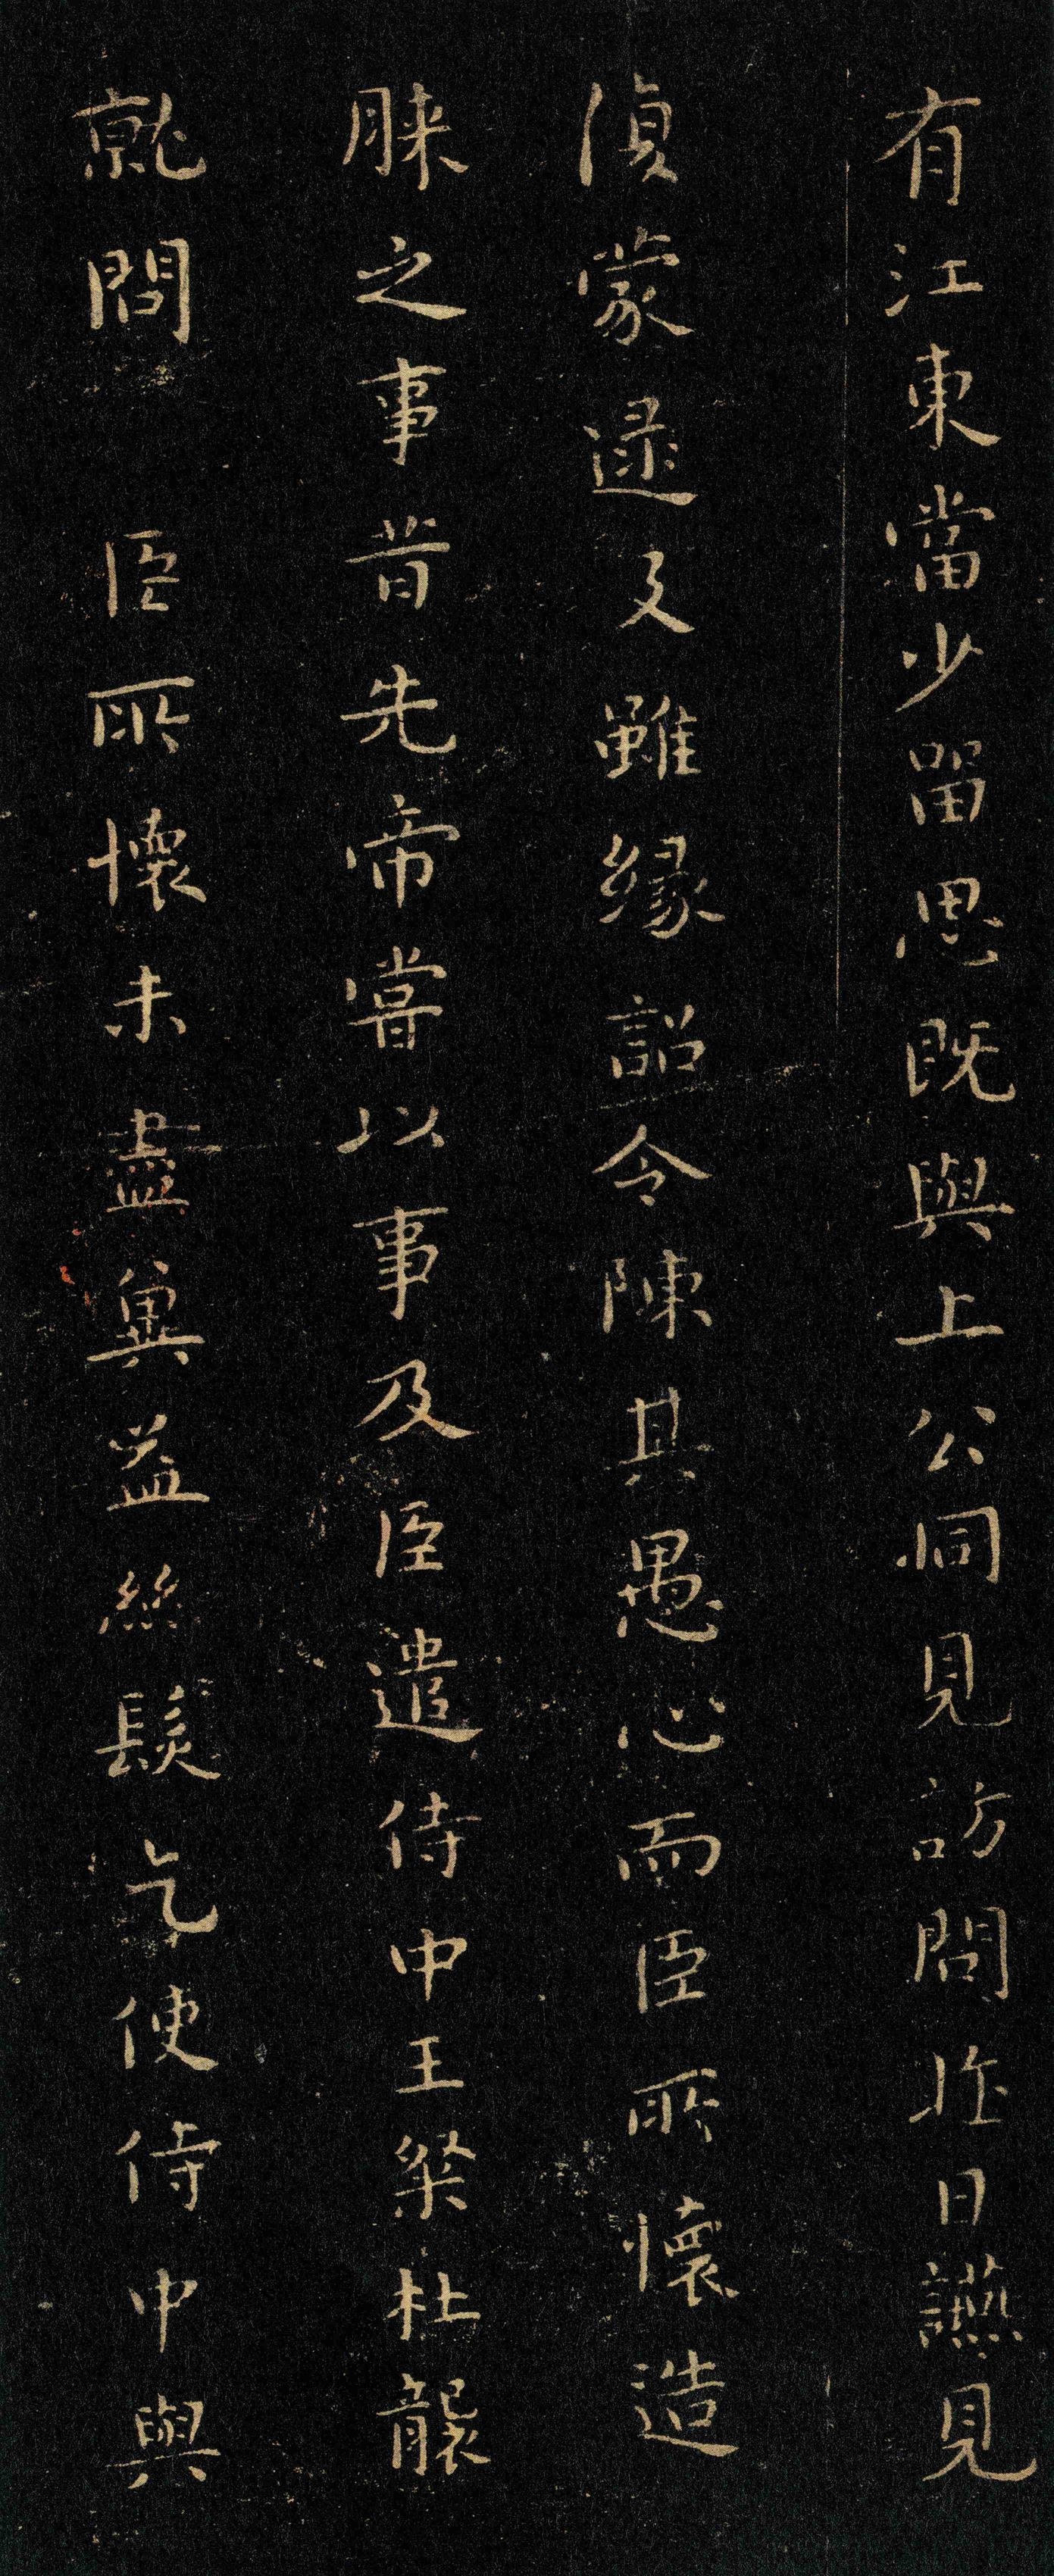 有江東當少留思既與上公同見訪問昨日讌見
復蒙逮及雖緣詔令陳其愚心而臣所懷造
膝之事昔先帝嘗以事及臣遣侍中王粲杜襲
就問 臣所懷未盡冀益絲髮乞使侍中與